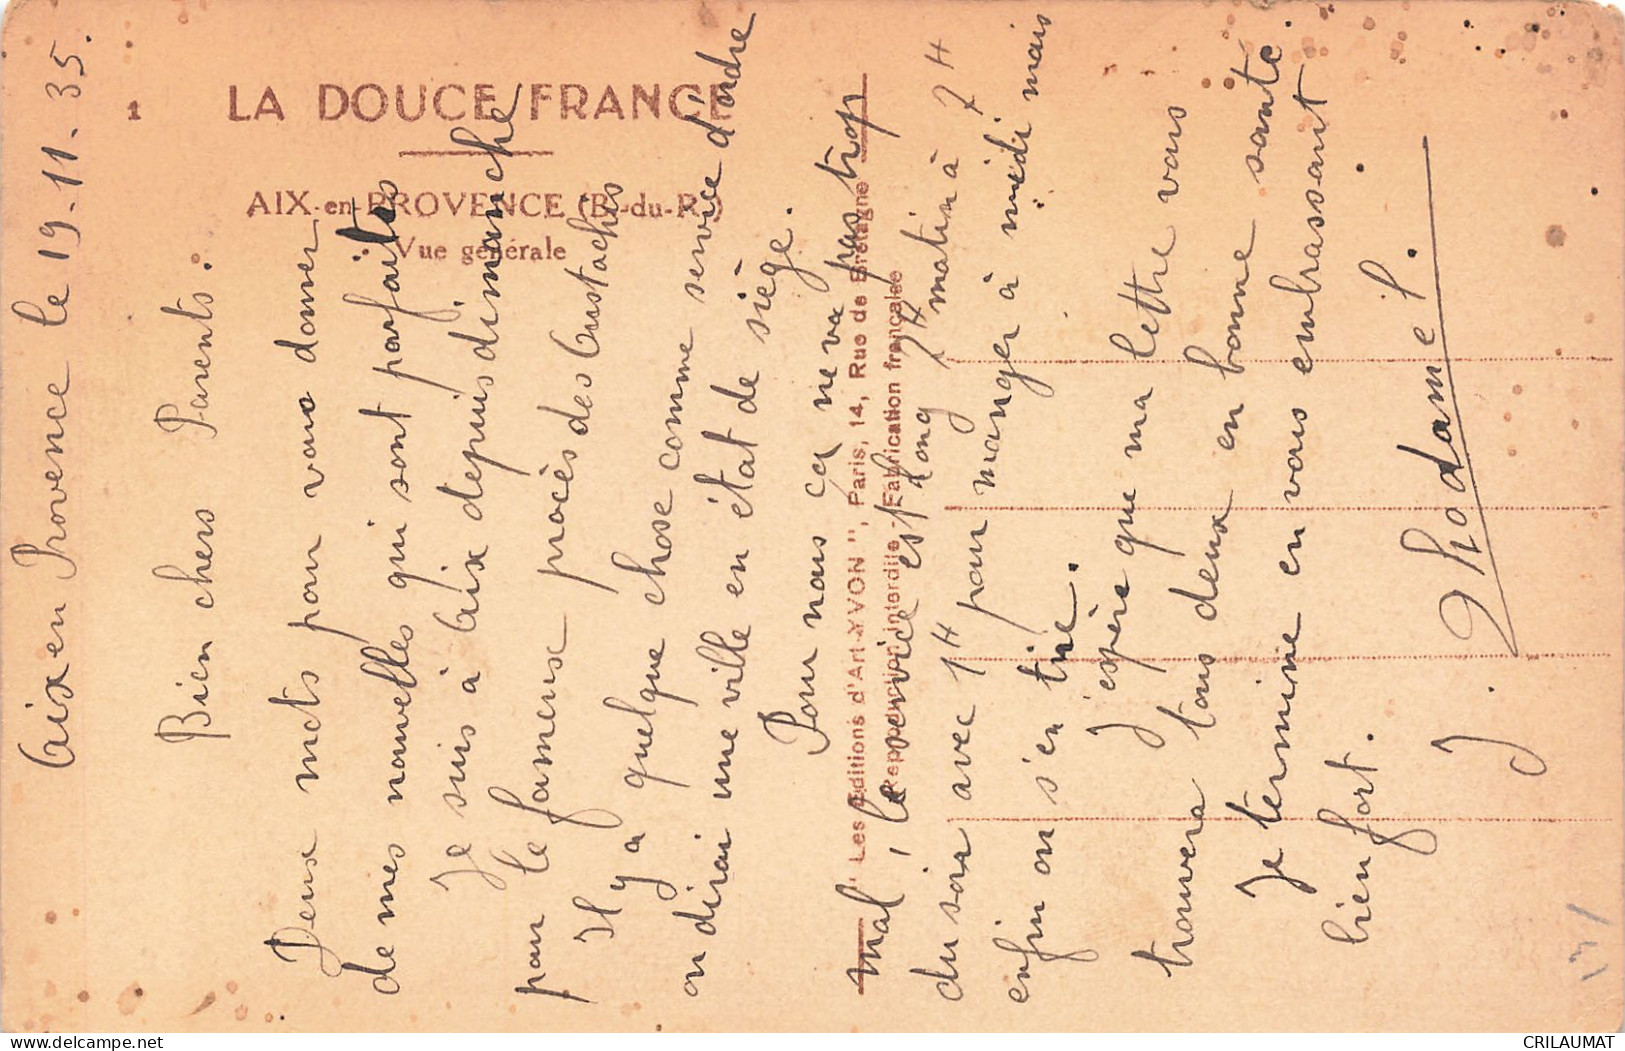 1
LA DOUCE FRANCE
AIX-en-PROVENCE (B.-du-R.)
Vue générale
" Les Editions d'Art YVON ", Paris, 14, Rue de Bretagne
Reproduction interdite - Fabrication française
Aix en Provence le 19.11.35.
Bien chers Parents.
Deux mots pour vous donner
de mes nouvelles qui sont parfaites
Je suis à Aix depuis dimanche
pour le fameux procès des Oustachis
Il y a quelque chose comme service d'ordre
on dirai une ville en état de siège.
Pour nous ça ne va pas trop
mal, le service est long 7H matin à 7H
du soir avec 1H pour manger à midi mais
enfin on s'en tire.
J'espère que ma lettre vous
trouvera tous deux en bonne santé
Je termine en vous embrassant
bien fort.
J.
CRILAUMAT